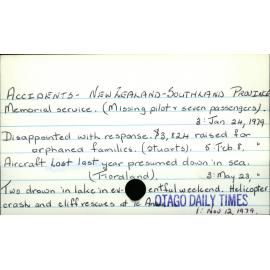 ACCIDENTS - NEW ZEALAND - SOUTHLAND PROVINCE
Memorial service. (Missing pilot & seven passengers).
3: Jan 24, 1979
Disappointed with response. $3,824 raised for
orphaned families. (Stuarts). 5: Feb. 8, "
Aircraft lost last year presumed down in sea.
(Fiordland). 3: May 23, "
Two drown in lake in eventful weekend. Helicopter
crash and cliff rescues at Te Anau
OTAGO DAILY TIMES
1: Nov 12, 1979.